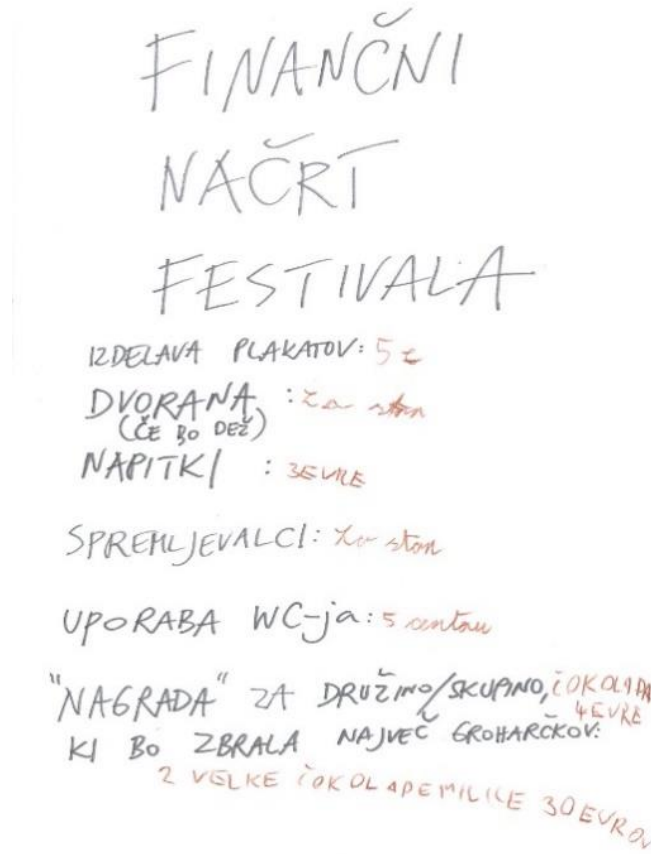 FINANČNI
NAČRT
FESTIVALA
IZDELAVA PLAKATOV: 5
DVORANA :
(ČE BO DEŽ)
NAPITKI : 3EVRE
SPREMLJEVALCI:
UPORABA WC-ja: 5 centov
"NAGRADA" ZA DRUŽINO/SKUPINO, ČOKOLADA
4EVRE
KI BO ZBRALA NAJVEČ GROHARČKOV:
2 VELKE ČOKOLADE MILKE 30 EVROV